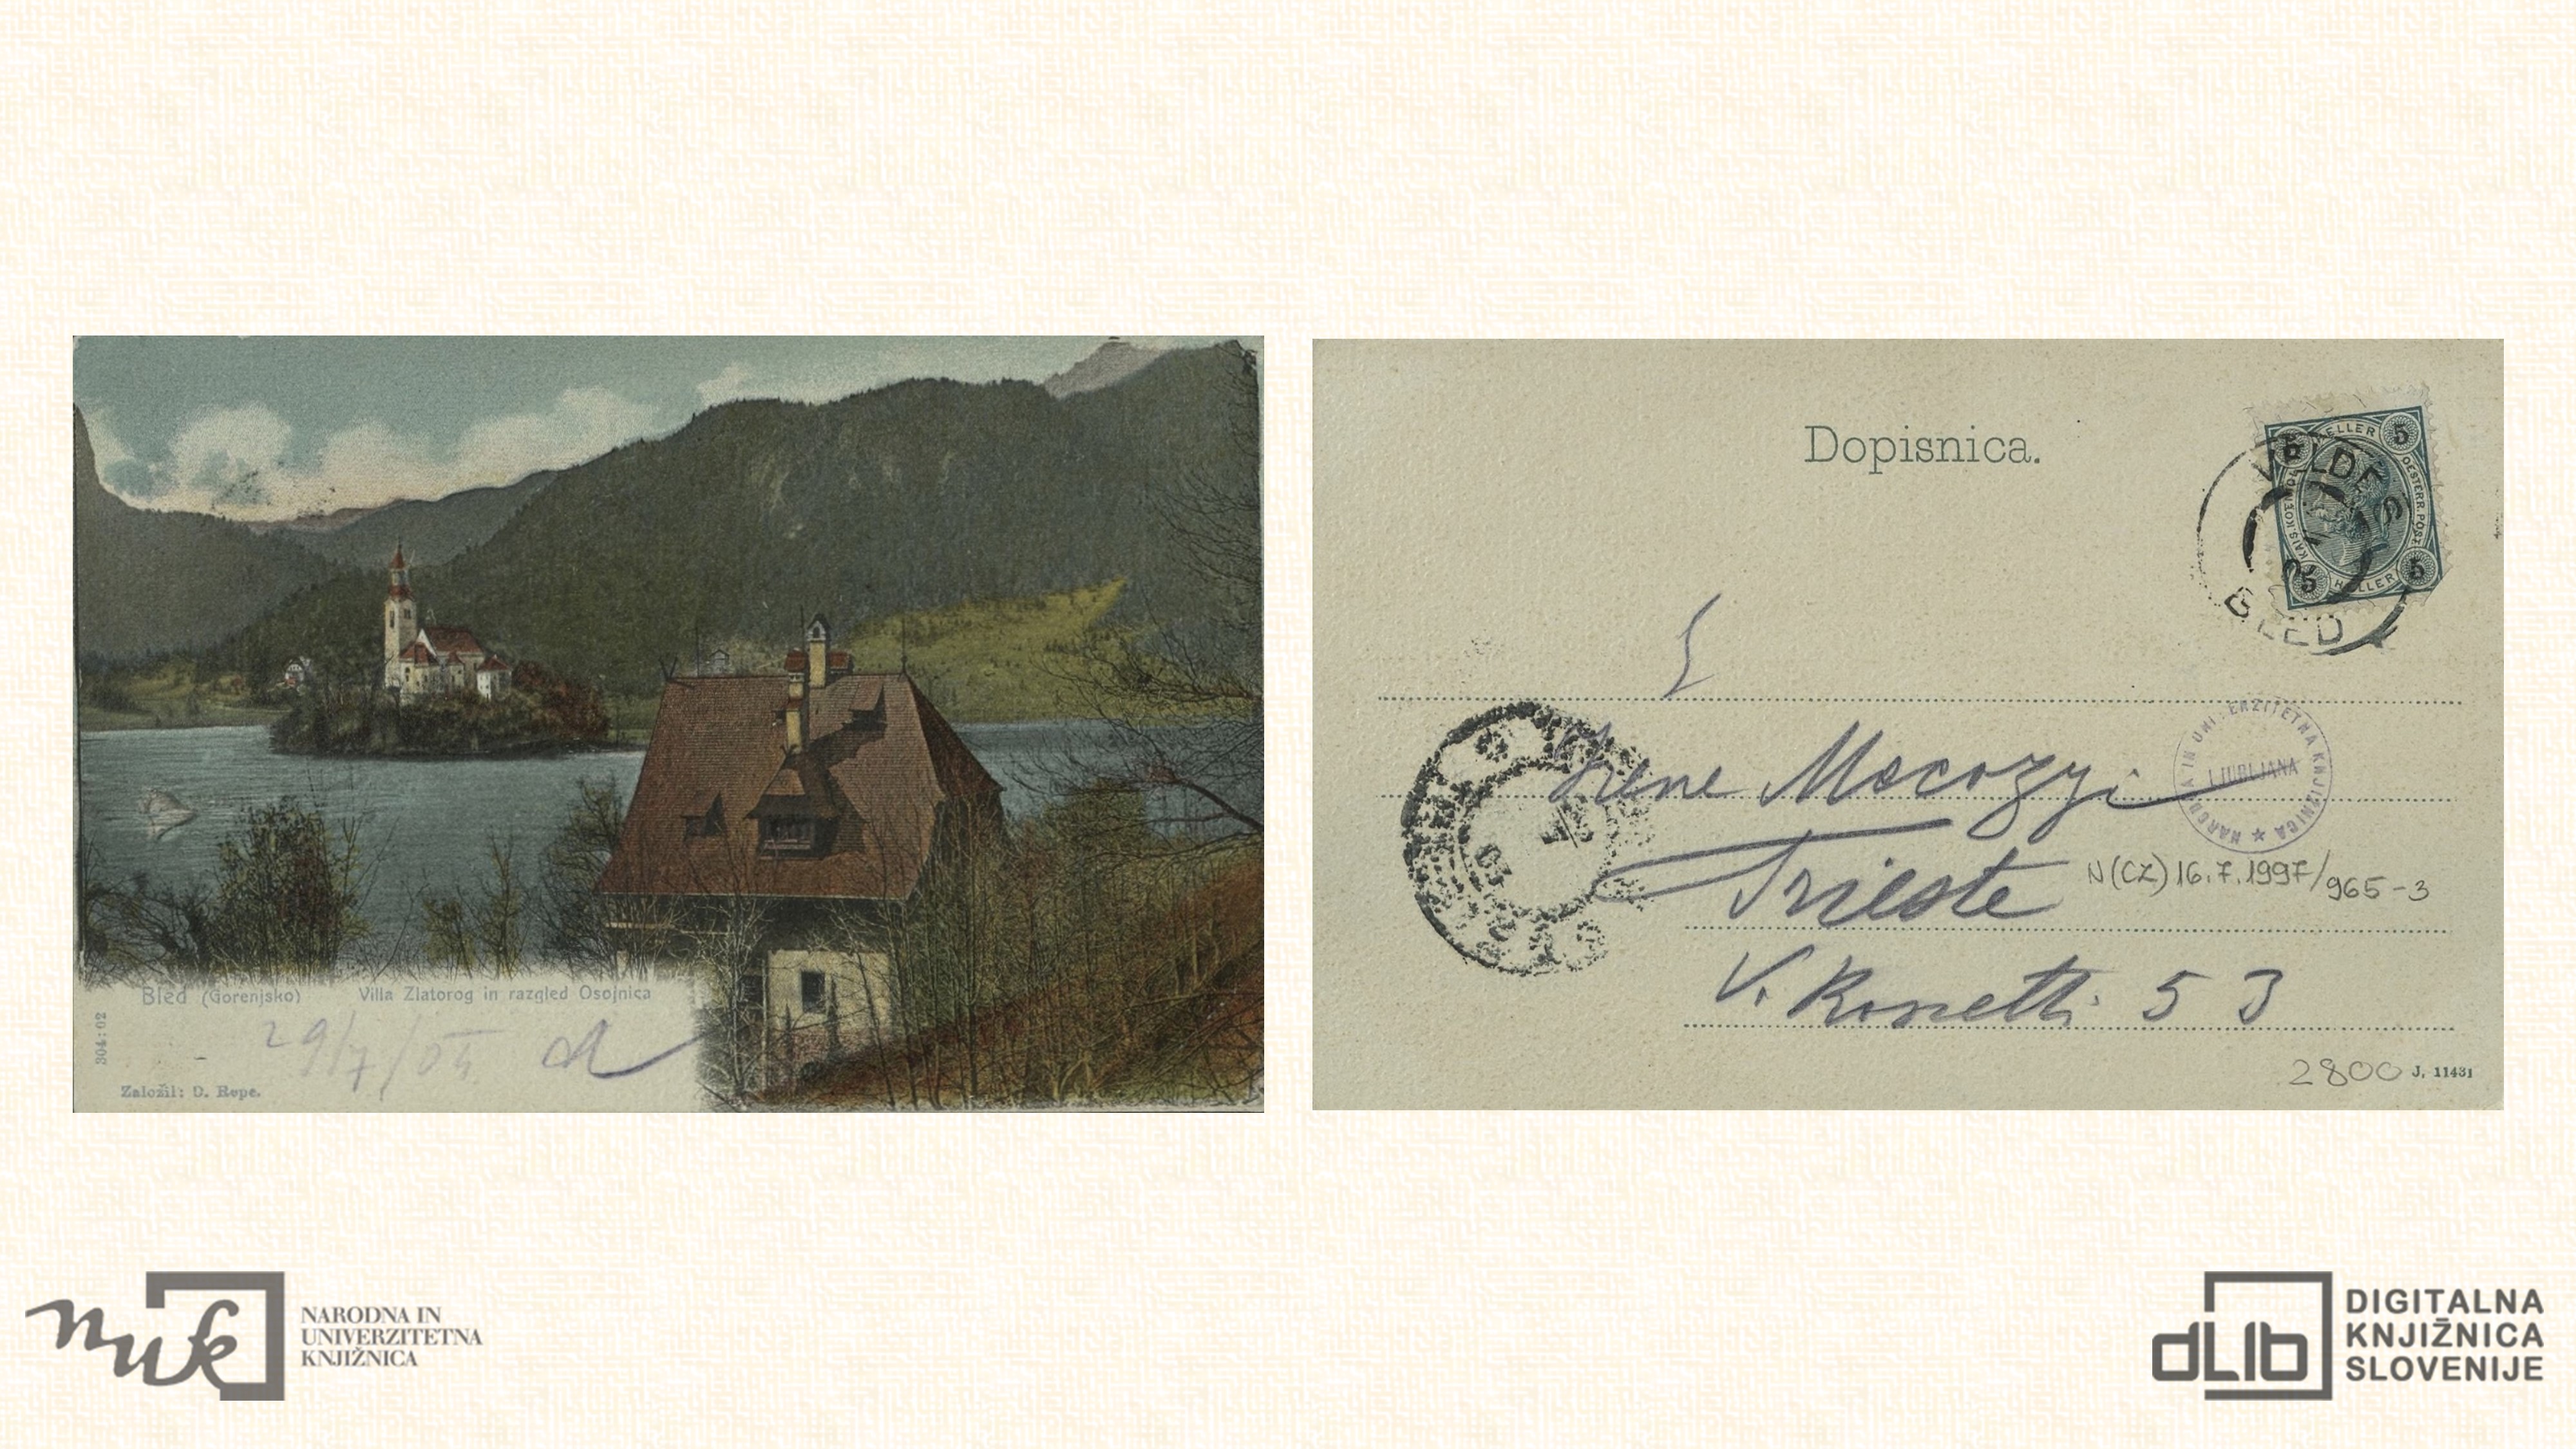 Bled (Gorenjsko) Villa Zlatorog in razgled Osojnica
29/7/04
304:02
Založil: O. Repe.
Dopisnica.
HELLER
5 5
KAIS. KOENIGL. OESTERR. POST.
5 5
HELLER
VELDES
BLED
Irene
Trieste
V. Rossetti 53
NARODNA IN UNIVERZITETNA KNJIŽNICA
LJUBLJANA
N(CZ)16.7.1997/965-3
2800 J. 11431
nuk
NARODNA IN
UNIVERZITETNA
KNJIŽNICA
dLIb
DIGITALNA
KNJIŽNICA
SLOVENIJE